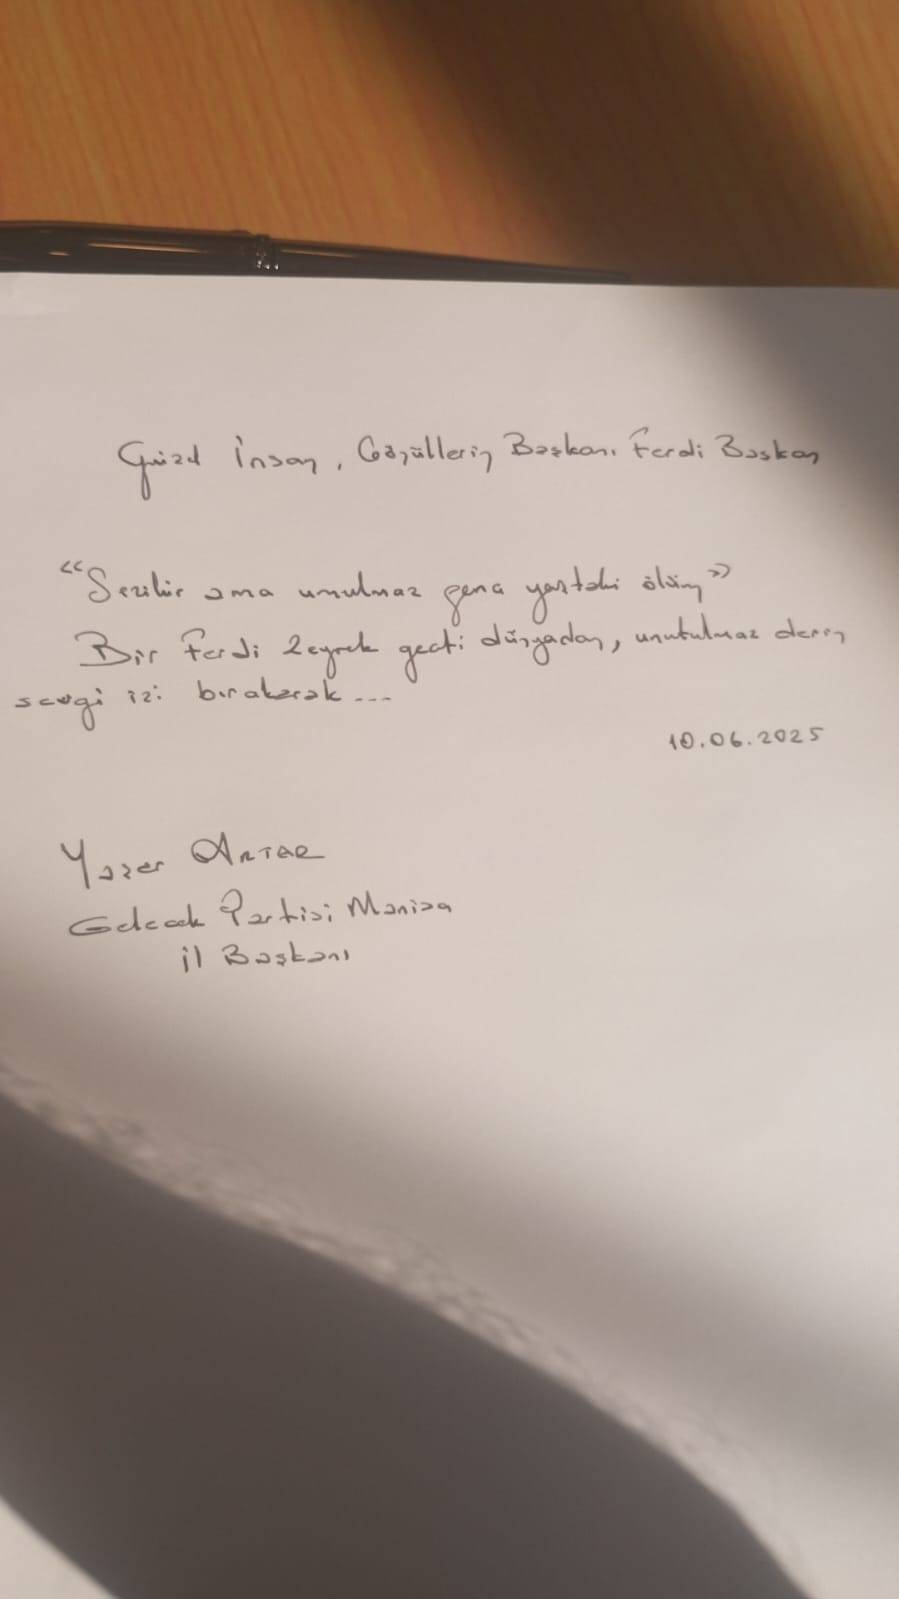 Güzel İnsan, Gönüllerin Başkanı Ferdi Başkan
"Sezilir ama umulmaz genç yaştaki ölüm"
Bir Ferdi Zeyrek geçti dünyadan, unutulmaz derin
sevgi izi bırakarak...
10.06.2025
Yaser ARTAR
Gelecek Partisi Manisa
il Başkanı